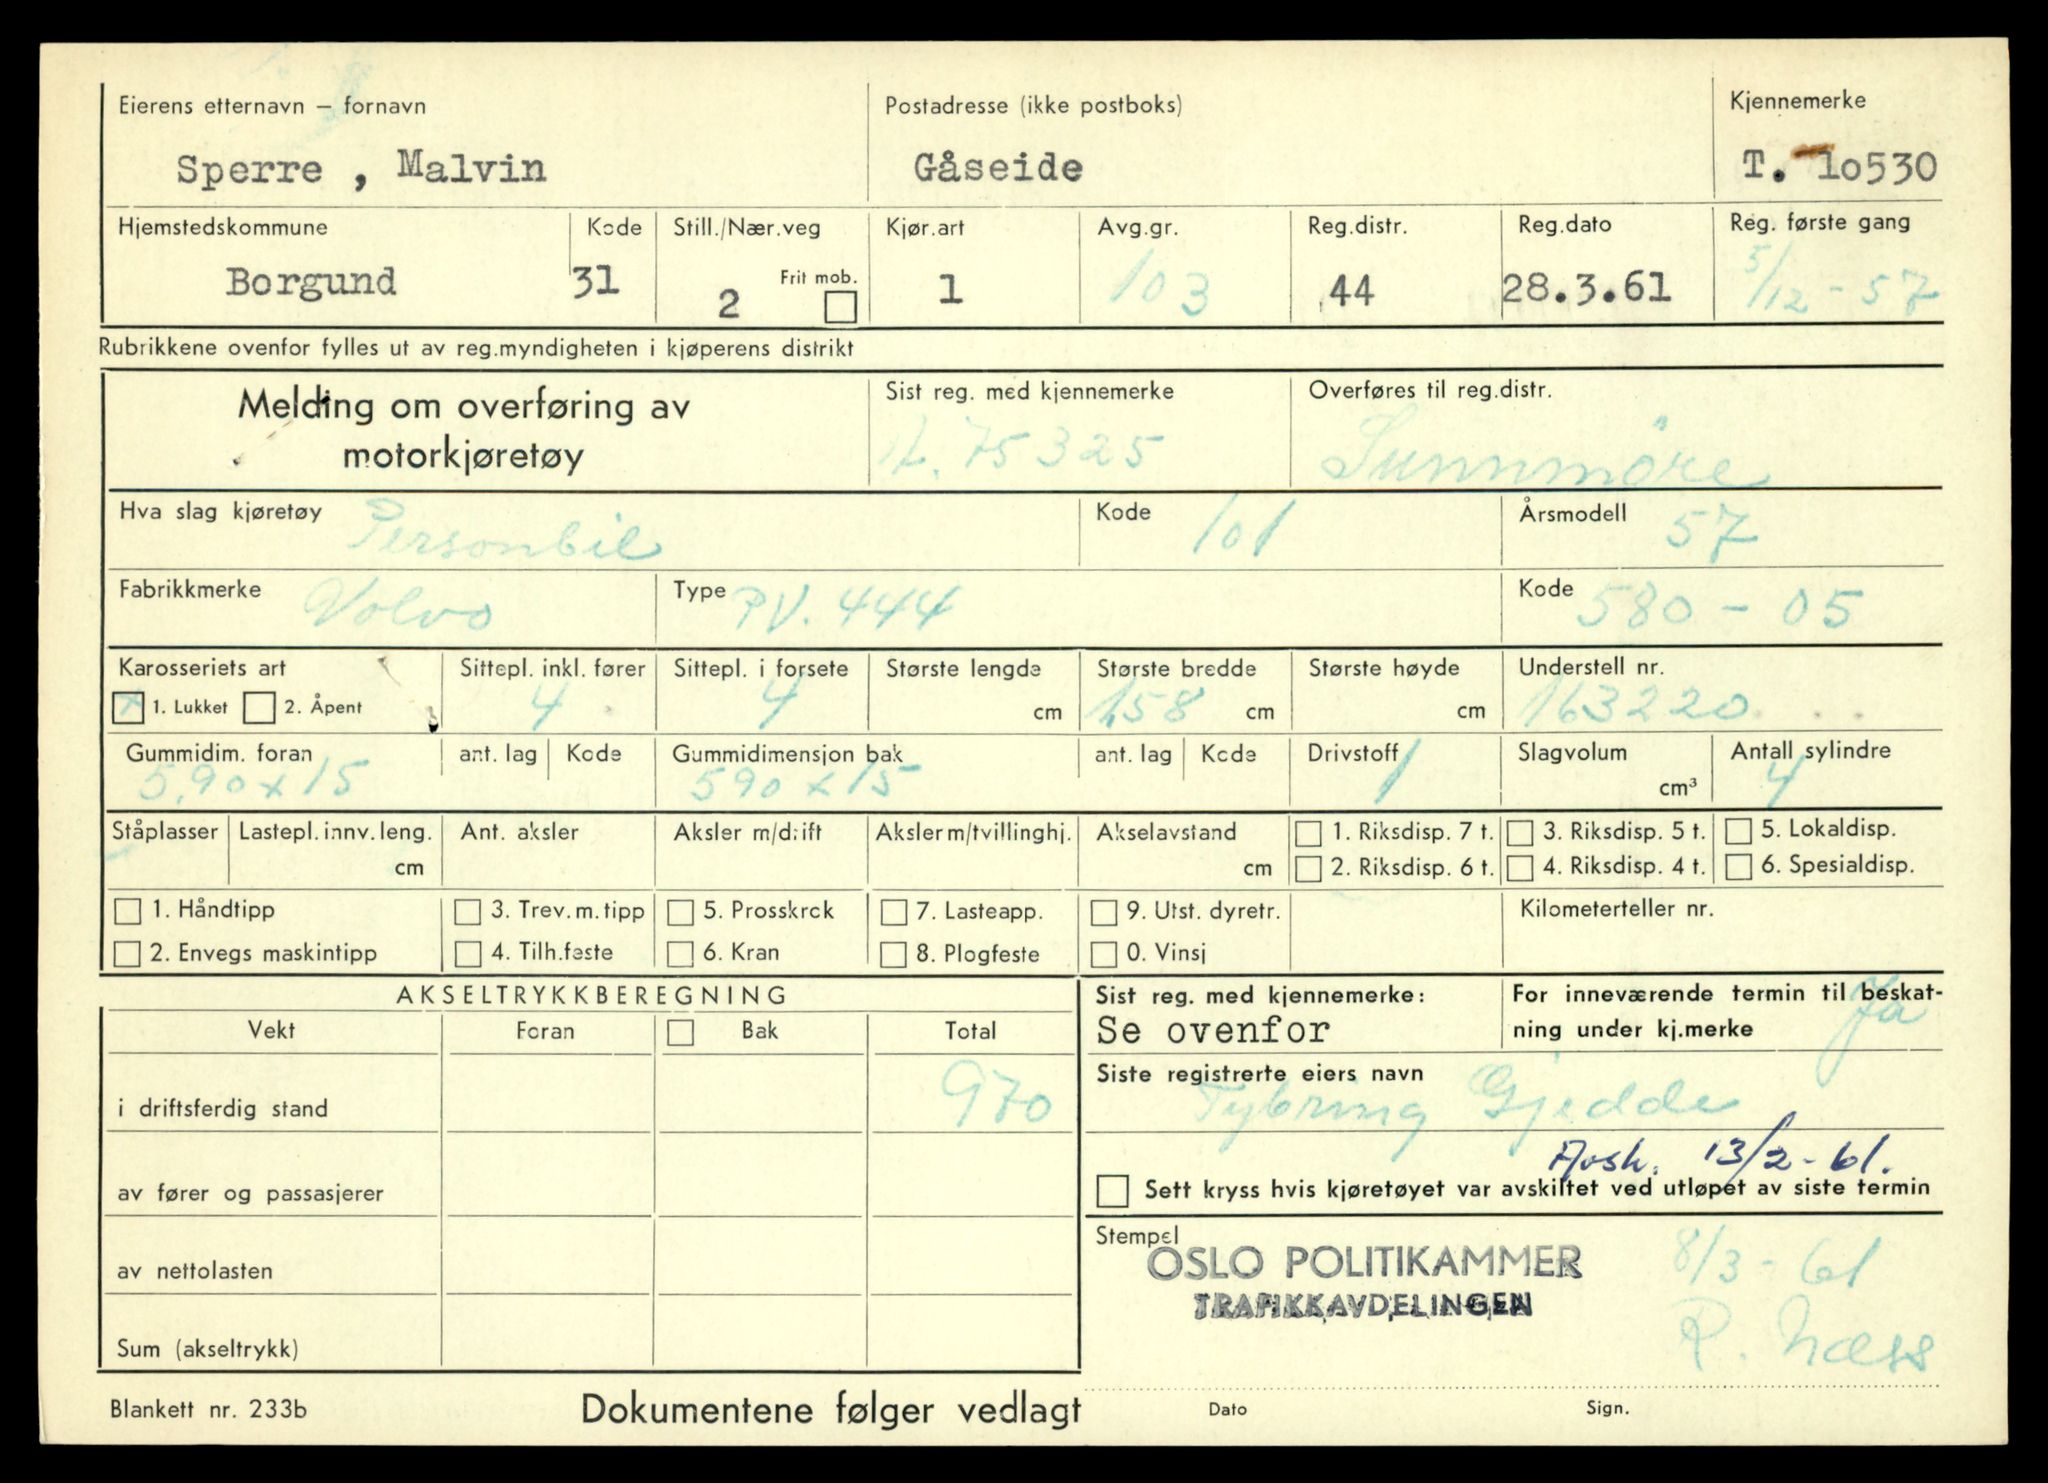 Eierens etternavn – fornavn Postadresse (ikke postboks) Kjennemerke
Sperre , Malvin Gåseide T. 10530
Hjemstedskommune Kode Still./Nær.veg Kjør.art Avg.gr. Reg.distr. Reg.dato Reg. første gang
Borgund 31 2 Frit mob. 1 103 44 28.3.61 5/12 - 57
Rubrikkene ovenfor fylles ut av reg.myndigheten i kjøperens distrikt
Melding om overføring av Sist reg. med kjennemerke Overføres til reg.distr.
motorkjøretøy 75325 Sunnmöre
Hva slag kjøretøy Personbil Kode 101 Årsmodell 57
Fabrikkmerke Volvo Type PV. 444 Kode 580 - 05
Karosseriets art Sittepl. inkl. fører Sittepl. i forsete Største lengde Største bredde Største høyde Understell nr.
x 1. Lukket 2. Åpent 4 4 cm 158 cm cm 163220
Gummidim. foran ant. lag Kode Gummidimensjon bak ant. lag Kode Drivstoff Slagvolum Antall sylindre
5.90 x 15 590 x 15 1 cm³ 4
Ståplasser Lastepl. innv. leng. Ant. aksler Aksler m/drift Aksler m/tvillinghj. Akselavstand 1. Riksdisp. 7 t. 3. Riksdisp. 5 t. 5. Lokaldisp.
cm cm 2. Riksdisp. 6 t. 4. Riksdisp. 4 t. 6. Spesialdisp.
1. Håndtipp 3. Trev. m. tipp 5. Prosskrok 7. Lasteapp. 9. Utst. dyretr. Kilometerteller nr.
2. Envegs maskintipp 4. Tilh.feste 6. Kran 8. Plogfeste 0. Vinsj
AKSELTRYKKBEREGNING Sist reg. med kjennemerke: For inneværende termin til beskat-
Vekt Foran Bak Total Se ovenfor ning under kj.merke Ja
Siste registrerte eiers navn
i driftsferdig stand 970 Tybring Gjedde
13/2 - 61.
av fører og passasjerer Sett kryss hvis kjøretøyet var avskiltet ved utløpet av siste termin
Stempel
av nettolasten OSLO POLITIKAMMER 8/3 - 61
TRAFIKKAVDELINGEN
Sum (akseltrykk) R. Næss
Blankett nr. 233b Dokumentene følger vedlagt Dato Sign.